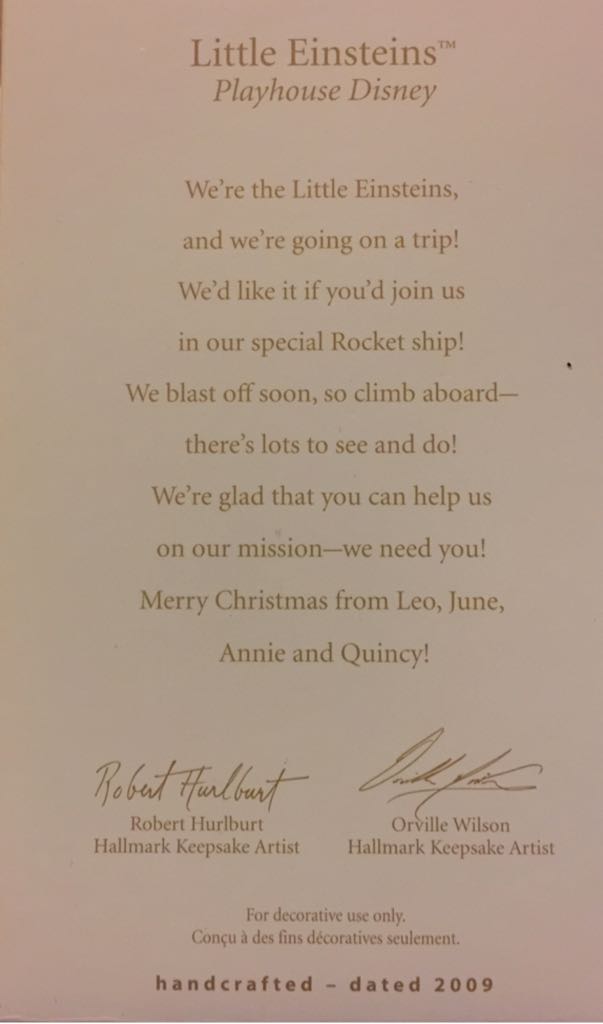 Little Einsteins™
Playhouse Disney
We're the Little Einsteins,
and we're going on a trip!
We'd like it if you'd join us
in our special Rocket ship!
We blast off soon, so climb aboard—
there's lots to see and do!
We're glad that you can help us
on our mission—we need you!
Merry Christmas from Leo, June,
Annie and Quincy!
Robert Hurlburt
Robert Hurlburt
Hallmark Keepsake Artist
Orville Wilson
Orville Wilson
Hallmark Keepsake Artist
For decorative use only.
Conçu à des fins décoratives seulement.
handcrafted – dated 2009